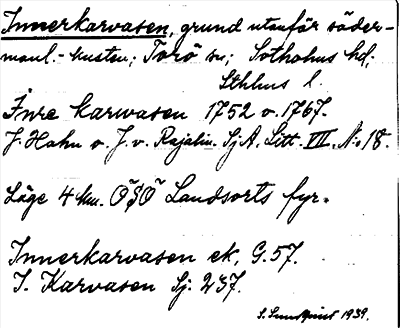 Innerkarvasen, grund utanför söder-
manl.-kusten; Torö sn; Sotholms hd;
Sthlms l.
Inre Karvasen 1752 o. 1767.
J. Hahn o. J. v. Rajalin. SjA. Litt. VII. No 18.
Läge 4 km. ÖSÖ Landsorts fyr.
Innerkarvasen ek. G. 57.
I. Karvasen Sj. 237.
S. Sundquist 1939.